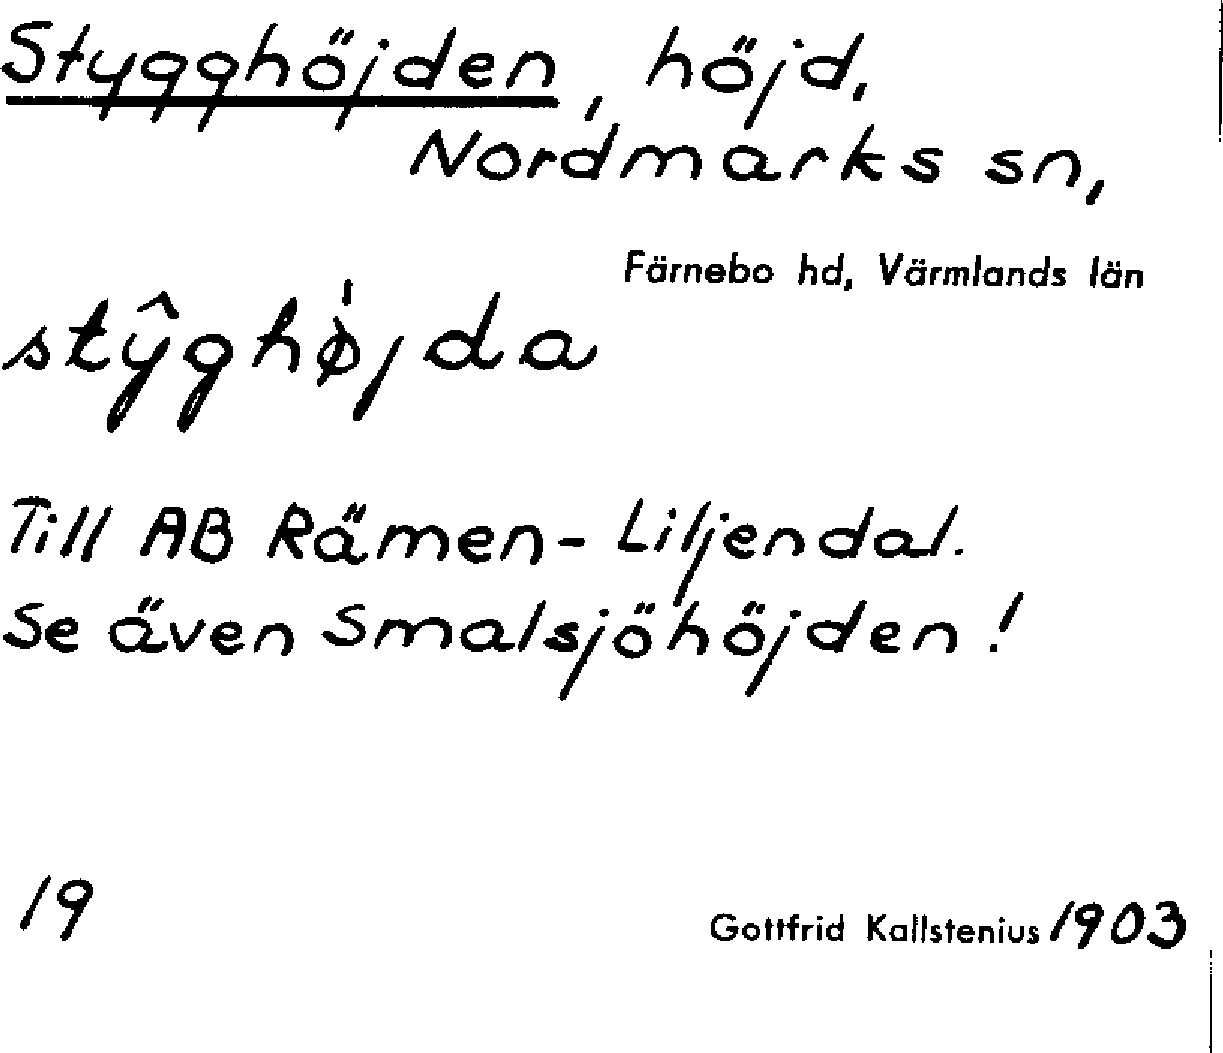 Stygghöjden, höjd,
Nordmarks sn,
Färnebo hd, Värmlands län
stŷghø̀jda
Till AB Rämen-Liljendal.
Se även Smalsjöhöjden!
19
Gottfrid Kallstenius 1903